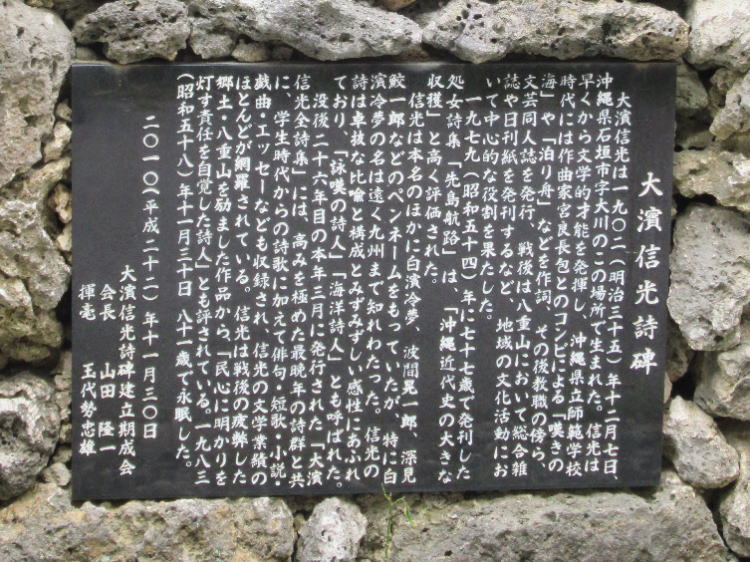 大濱信光詩碑
大濱信光は一九〇二(明治三十五)年十二月七日、
沖縄県石垣市字大川のこの場所で生まれた。信光は
早くから文学的才能を発揮し、沖縄県立師範学校
時代には作曲家宮良長包とのコンビによる「嘆きの
海」や「泊り舟」などを作詞、その後教職の傍ら、
文芸同人誌を発行、戦後は八重山において総合雑
誌や日刊紙を発刊するなど、地域の文化活動にお
いて中心的な役割を果たした。
一九七九(昭和五十四)年に七十七歳で発刊した
処女詩集「先島航路」は、「沖縄近代史の大きな
収穫」と高く評価された。
信光は本名のほかに白濱冷夢、波間晃一郎、深見
鮫一郎などのペンネームをもっていたが、特に白
濱冷夢の名は遠く九州まで知れわたった。信光の
詩は卓抜な比喩と構成とみずみずしい感性にあふれ
ており、「詠嘆の詩人」「海洋詩人」とも呼ばれた。
没後二十六年目の本年三月に発行された「大濱
信光全詩集」には、高みを極めた最晩年の詩群と共
に、学生時代からの詩歌に加えて俳句・短歌・小説・
戯曲・エッセーなども収録され、信光の文学業績の
ほとんどが網羅されている。信光は戦後の疲弊した
郷土・八重山を励ました作品から、「民心に明かりを
灯す責任を自覚した詩人」とも評されている。一九八三
(昭和五十八)年十一月三十日 八十一歳で永眠した。
二〇一〇(平成二十二)年十一月三〇日
大濱信光詩碑建立期成会
会長 山田 隆一
揮毫 玉代勢忠雄